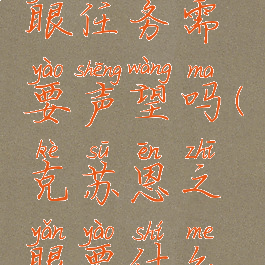 眼任务需
yào shēng wàng ma
要声望吗(
kè sū ēn zhī
克苏恩之
yǎn yào shí me
眼要什么